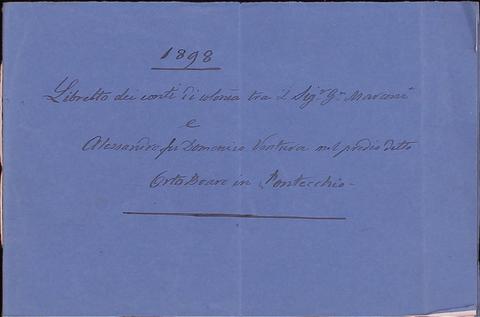 1898
Libretto dei conti di colonia tra il Sigr Gn Marconi
e
Alessandro fu Domenico Ventura nel predio detto
Orto Boaro in Pontecchio-